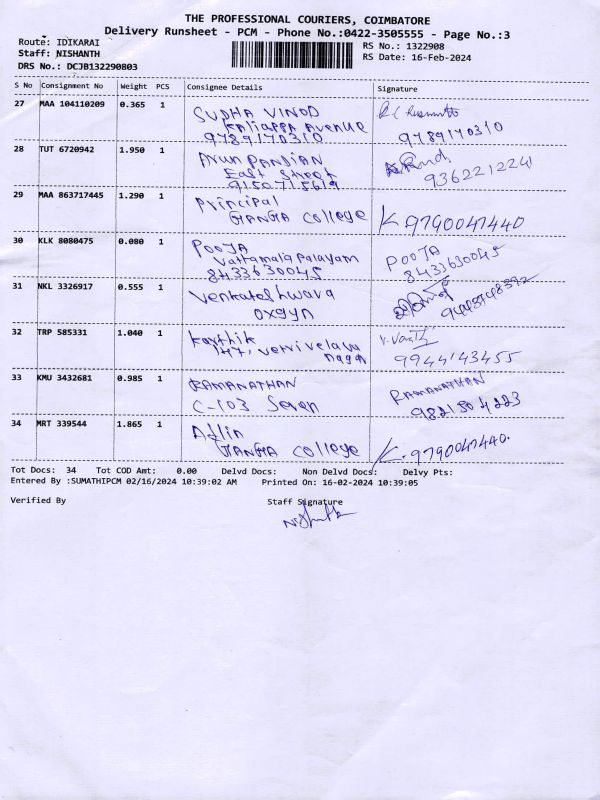 THE PROFESSIONAL COURIERS, COIMBATORE
Delivery Runsheet - PCM - Phone No.:0422-3505555 - Page No.:3
Route: IDIKARAI
Staff: NISHANTH
DRS No.: DCJB132290803
RS No.: 1322908
RS Date: 16-Feb-2024
S No Consignment No Weight PCS Consignee Details Signature
27 MAA 104110209 0.365 1 SUDHA VINOD
Kaliappa Avenue
9789170310 9789170310
28 TUT 6720942 1.950 1 Arun PANDIAN
East Street 9362212241
9150715619
29 MAA 863717445 1.290 1 Principal
GANGA College K 9790047440
30 KLK 8080475 0.080 1 POOJA POOJA
Vattamalapalayam 8433630045
8433630045
31 NKL 3326917 0.555 1 Venkateshwara 9443748372
oxgyn
32 TRP 585331 1.040 1 Karthik
147, vetrivelava
nagar 9944143455
33 KMU 3432681 0.985 1 RAMANATHAN RAMANATHAN
C-103 Seven 9821504223
34 MRT 339544 1.865 1 Azlin
GANGA College K. 9790047440.
Tot Docs: 34 Tot COD Amt: 0.00 Delvd Docs: Non Delvd Docs: Delvy Pts:
Entered By :SUMATHIPCM 02/16/2024 10:39:02 AM Printed On: 16-02-2024 10:39:05
Verified By Staff Signature